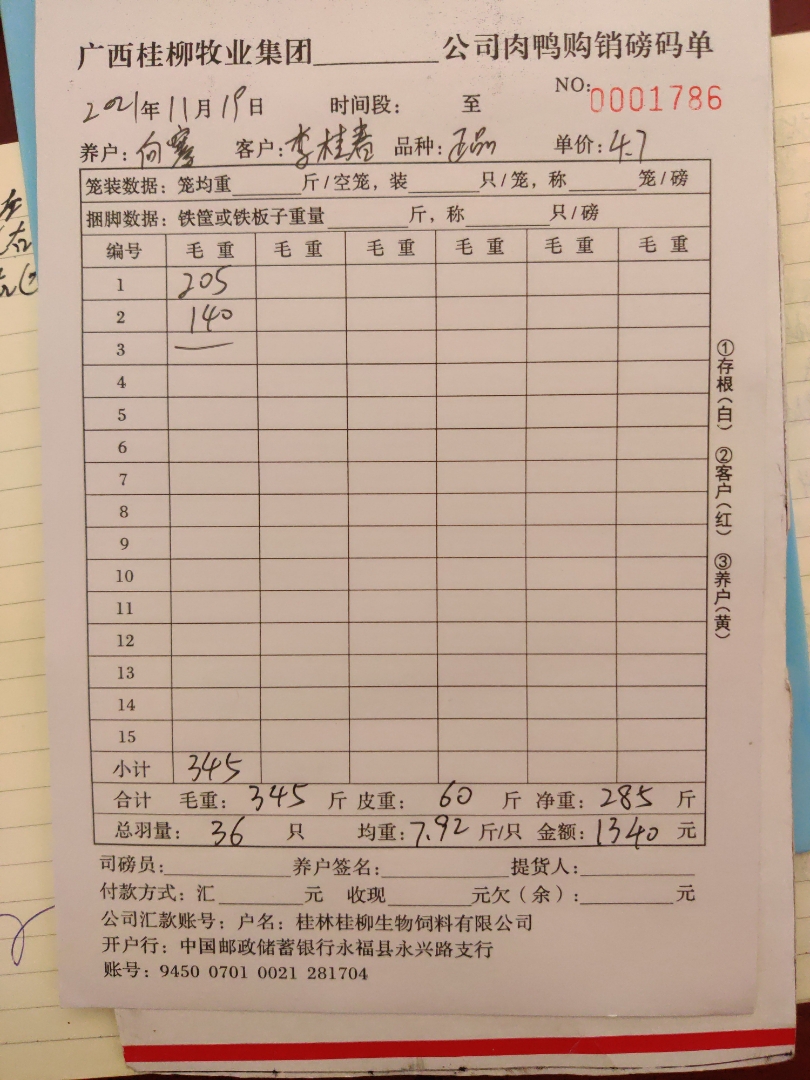 广西桂柳牧业集团________公司肉鸭购销磅码单
NO:0001786
2021年11月19日 时间段: 至
养户:向寒 客户:李桂春 品种:正品 单价:4.7
笼装数据:笼均重______斤/空笼,装______只/笼,称______笼/磅
捆脚数据:铁筐或铁板子重量______斤,称______只/磅
编号 毛重 毛重 毛重 毛重 毛重 毛重
1 205
2 140
3
4
5
6
7
8
9
10
11
12
13
14
15
小计 345
合计 毛重:345斤 皮重:60斤 净重:285斤
总羽量:36只 均重:7.92斤/只 金额:1340元
司磅员:________ 养户签名:________ 提货人:________
付款方式:汇______元 收现______元欠(余):______元
公司汇款账号:户名:桂林桂柳生物饲料有限公司
开户行:中国邮政储蓄银行永福县永兴路支行
账号:9450 0701 0021 281704
①存根(白) ②客户(红) ③养户(黄)